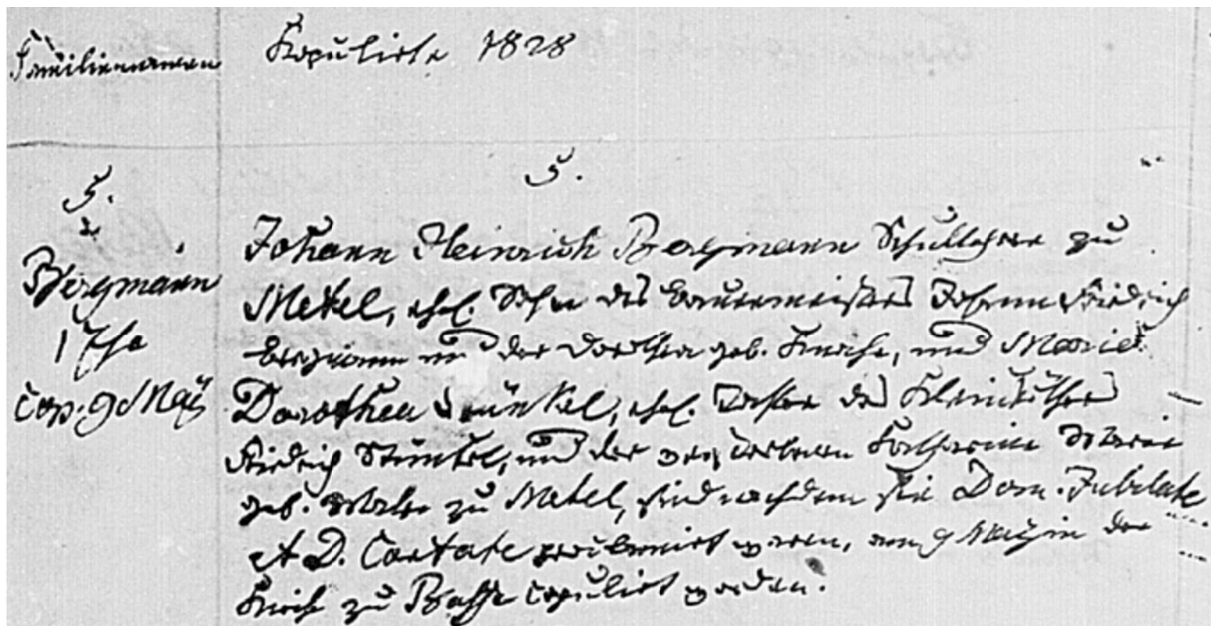 Familiennamen
Kopulirte 1828
5.
Bergmann
1 Ehe
cop. 9 Maÿ
5.
Johann Heinrich Bergmann Schullehrer zu
Metel, ehel. Sohn des Bauermeisters Johann Friedrich
Bergmann und der Dorothea geb., und Marie
Dorothea Stünkel, ehel. Tochter des Kleinköthers
Friedrich Stünkel, und der verstorbenen Katharine Marie
geb. zu Metel, sind nachdem sie Dom. Jubilate
et D. Cantate proclamirt waren, am 9 Maÿ in der
Kirche zu Basse copulirt worden.